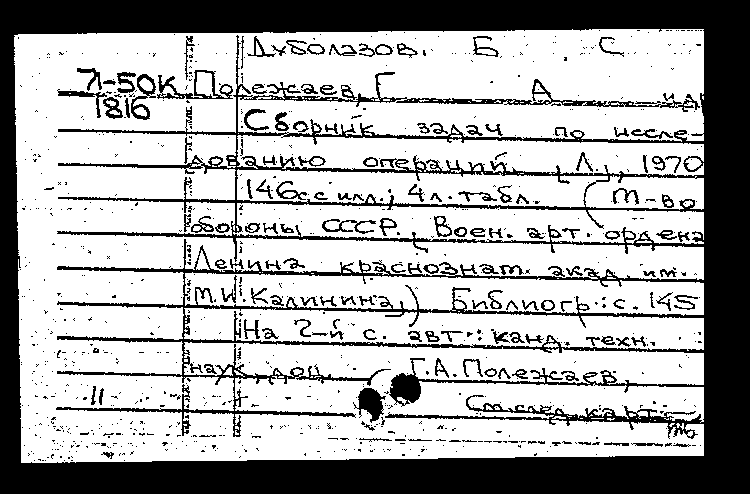 Дуболазов. Б С
Л-50К Полежаев, Г А и др
1816
Сборник задач по иссле-
дованию операций. [Л.], 1970
146с с илл.; 4л. табл. (М-во
обороны СССР. [Воен. арт. ордена
Ленина краснознам. акад. им.
М.И. Калинина]) Библиогр.: с. 145
На 2-й с. авт.: канд. техн.
наук, доц. Г.А. Полежаев,
11 См. след. карт.